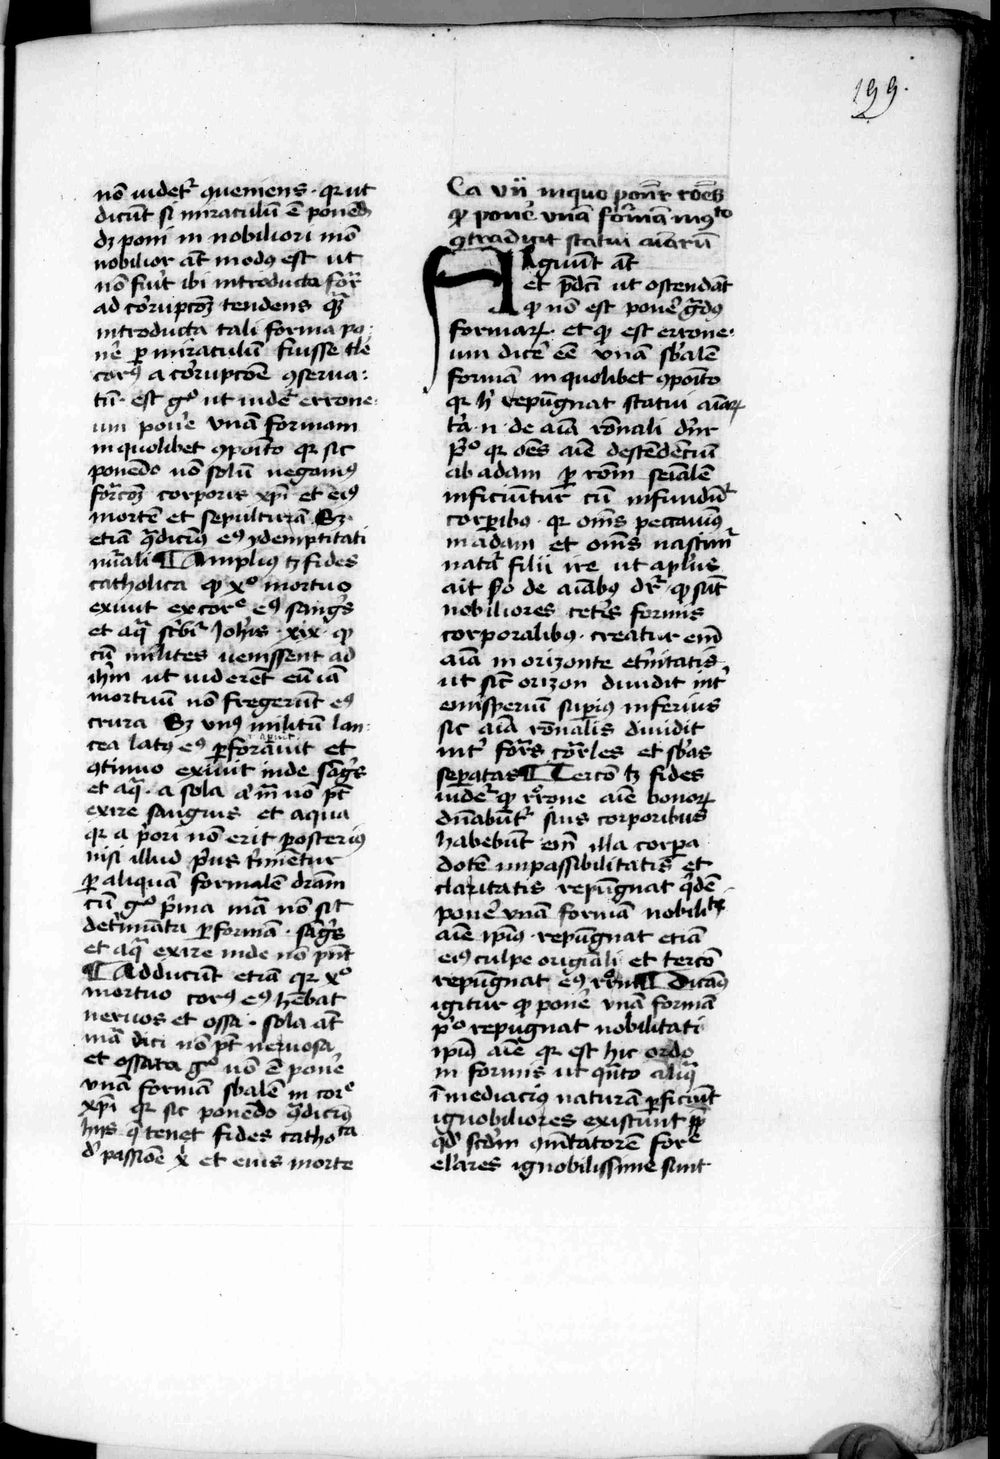 199.
nō uidet᷑ ꝯueniens · qr ut
dicūt si miraculū ē ponēdū
dꝫ poni in nobiliori mō
nobilior āt modꝰ est ut
nō fiu᷑t ibi introducta for᷑
ad corrupcoꝫ tendens qꝫ
introducta tali forma po
n᷑e ꝑ miraculū fuisse tl᷑e
corꝰ a corrupcōe ꝯserua
tū · est gº ut uidet᷑ errone
um pon᷑e vnam formam
in quolibet ꝯpoīto qr sic
ponēdo nō solū negamꝰ
forc̄oꝫ corporis xp̄i et eiꝰ
mortē et sepulturam Sꝫ
etiā ꝯ̄dicimꝰ eꝰ ydemptitati
nūali ¶ Amplius tꝫ fides
catholica ꝙ xº mortuo
exiuit ex cor̄e eꝰ sangꝰs
et aqā sc̄bit᷑ Ioh̄is · xix · ꝙ
cū milites uenissent ad
ih̄m ut uiderēt eū iā
mortuū nō fregerūt eꝰ
crura · Sꝫ vnꝰ militū lan
cea latꝰ eꝰ ꝑforauit et
ꝯtinuo exiuit inde sāgꝰs
et aqā · a sola āt m̄a nō pt̄
exire sanguis et aqua
qr a p᷑ori nō erit posteriꝰ
nisi illud p᷑us t᷑minetur
ꝑ aliquā formalē dr̄am
cū gº p᷑ma mā nō sit
det᷑minata ꝑ formā · sāgꝰs
et aqā exire inde nō pn̄t
¶ Adducūt etiā qr xº
mortuo corꝰ eꝰ hēbat
neruos et ossa · sola āt
mā dici nō pt̄ neruosa
et ossata gº nō ē pon᷑e
vnā formā sb̄alē in cor̄e
xp̄i qr sic ponēdo ꝯ̄dicimꝰ
hijs q̄ tenet fides cathoᶜᵃ
d᷑ passiōe x᷑ et eius morte
Ca vii in quo ponūt᷑ rōes
ꝙ pon᷑e vnā formā in ꝯᵗᵒ
ꝯtradicit statui aīarū
Arguūt āt
et p̄dc̄i ut ostendāt
ꝙ nō est pon᷑e g᷑dꝰ
formaꝝ · et ꝙ est errone
um dic᷑e eē vnā sb̄alē
formā in quolibet ꝯpoīto
qr h᷑ repūgnat statui aīaꝝ
tā · n · de aīa rōnali dn̄r
p᷑º qr oēs aīe descēdencium
ab adam ꝑ rōm seīalē
inficiūtur cū infundūt᷑
corꝑibꝰ · qr om̄s peccauimꝰ
in adam et om̄s nascim᷑
natā filii ire ut aplꝰus
ait Sº de aīabꝰ dr᷑ ꝙ sūt
nobiliores cet᷑is formis
corporalibꝰ · creatur enī
aīa in orizonte et᷑nitatis
ut sic̄ orizon diuidit int᷑
emisperiū supiꝰ inferius
sic aīa rōnalis diuidit
int᷑ for᷑s corꝑles et sb̄as
seperatas ¶ Tercō tꝫ fides
uidet᷑ ꝙ rōne aīe bonoꝝ
dn̄abūt᷑ suis corporibus
habebūt enī illa corꝑa
dotē impassibilitatis et
claritatis repūgnat q᷑dē
pon᷑e vnā formā nobilitᵃᵗⁱ
aīe ipiꝰ · repūgnat etiā
eiꝰ culpe origīali et tercō
repūgnat eꝰ rōni ¶ Dicamꝰ
igitur ꝙ pon᷑e vnā formā
p᷑º repugnat nobilitati
ipiꝰ aīe qr est hic ordo
in formis ut qn̄to aliq̄
īmediaciꝰ naturā ꝑficiūt
ignobiliores existūt ꝓp̄
qd᷑ scd̄m ꝯm̄tatorē for᷑e
el᷑ares ignobilissime sunt